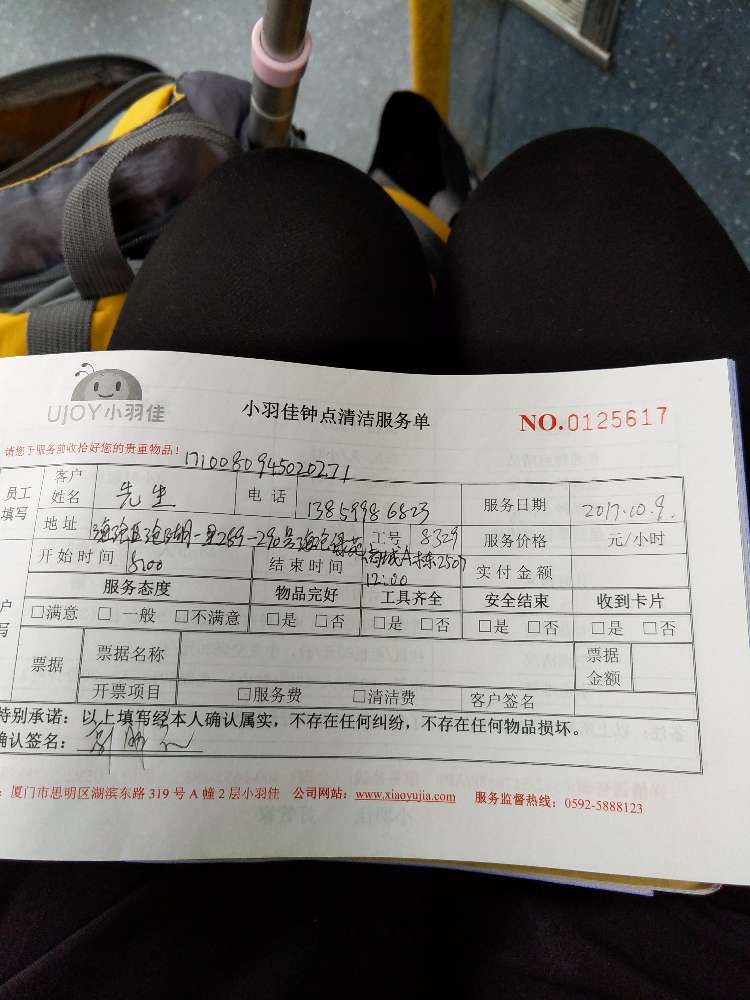 UJOY小羽佳
小羽佳钟点清洁服务单
NO.0125617
请您于服务前收拾好您的贵重物品!
171008094502027 1
员工填写 客户姓名 先生 电话 13859986823 服务日期 2017.10.9.
地址 269-290号 A栋2507 工号 8329 服务价格 元/小时
开始时间 8:00 结束时间 12:00 实付金额
服务态度 物品完好 工具齐全 安全结束 收到卡片
□满意 □一般 □不满意 □是 □否 □是 □否 □是 □否 □是 □否
票据 票据名称 票据金额
开票项目 □服务费 □清洁费 客户签名
特别承诺:以上填写经本人确认属实,不存在任何纠纷,不存在任何物品损坏。
确认签名:
:厦门市思明区湖滨东路 319 号 A 幢 2 层小羽佳 公司网站:www.xiaoyujia.com 服务监督热线:0592-5888123